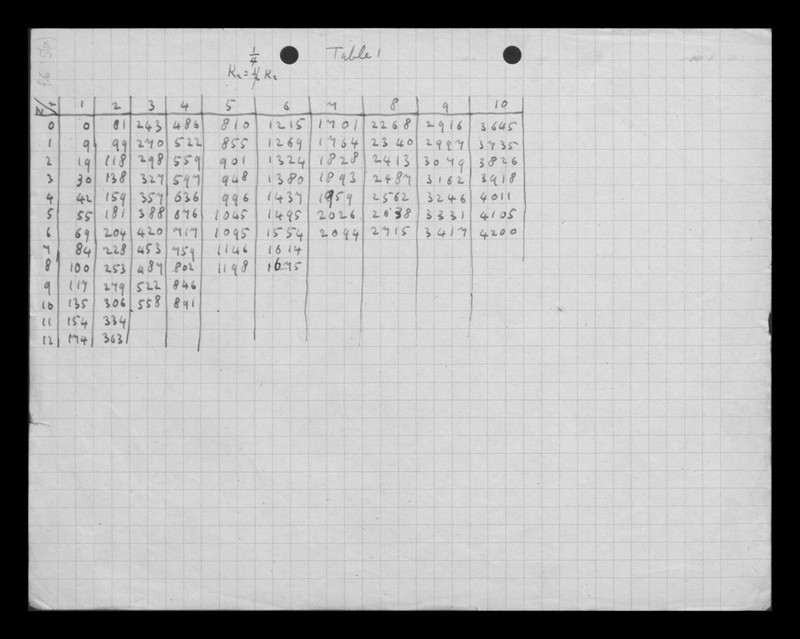 Table 1
1/4
z/r 1 2 3 4 5 6 7 8 9 10
0 0 81 243 486 810 1215 1701 2268 2916 3645
1 9 99 270 522 855 1269 1764 2340 2997 3735
2 19 118 298 559 901 1324 1828 2413 3079 3826
3 30 138 327 597 948 1380 1893 2487 3162 3918
4 42 159 357 636 996 1437 1959 2562 3246 4011
5 55 181 388 676 1045 1495 2026 2638 3331 4105
6 69 204 420 717 1095 1554 2094 2715 3417 4200
7 84 228 453 759 1146 1614
8 100 253 487 802 1198 1675
9 117 279 522 846
10 135 306 558 891
11 154 334
12 174 363